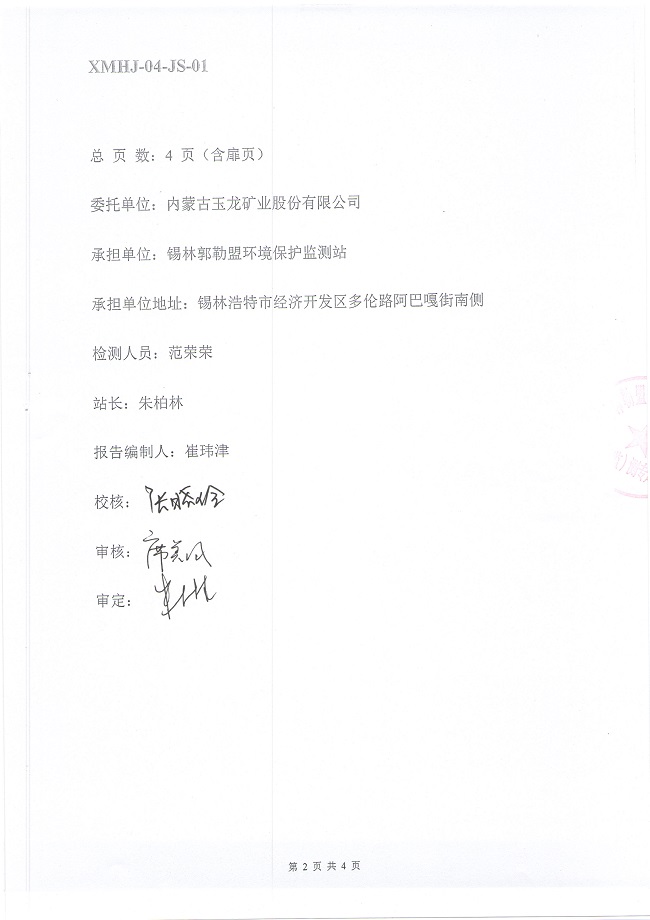 XMHJ-04-JS-01
总 页 数：4 页（含扉页）
委托单位：内蒙古玉龙矿业股份有限公司
承担单位：锡林郭勒盟环境保护监测站
承担单位地址：锡林浩特市经济开发区多伦路阿巴嘎街南侧
检测人员：范荣荣
站长：朱柏林
报告编制人：崔玮津
校核：
审核：
审定：
第 2 页 共 4 页